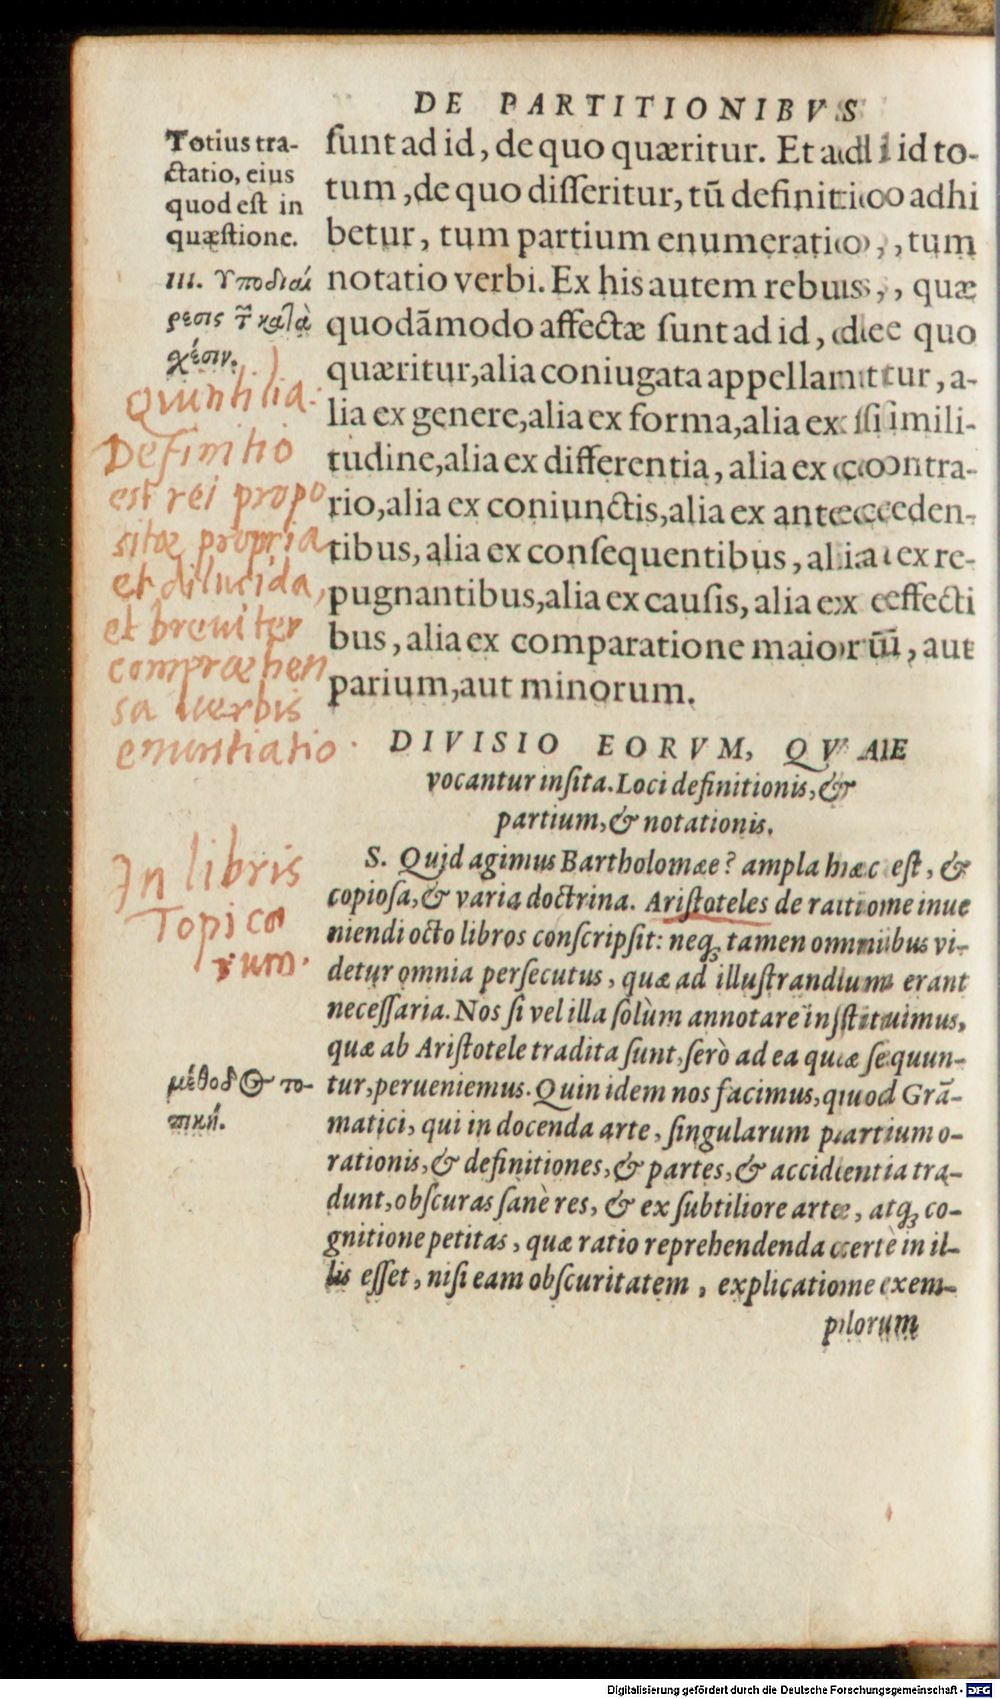 DE PARTITIONIBVS
Totius tra-
ctatio, eius
quod est in
quæstione.
III. Ὑποδιαί
ρεσις τ̃ καλὰ
χέσιν.
Quintilia.
Definitio
est rei propo
sitæ propria
et dilucida,
et breuiter
compræhen
sa uerbis
enuntiatio.
In libris
Topico
rum.
μέθοδος το-
πική.
ſunt ad id, de quo quæritur. Et ad id to-
tum, de quo diſſeritur, tū definitio adhi
betur, tum partium enumeratio, tum
notatio verbi. Ex his autem rebus, quæ
quodāmodo affectæ ſunt ad id, de quo
quæritur, alia coniugata appellantur, a-
lia ex genere, alia ex forma, alia ex ſimili-
tudine, alia ex differentia, alia ex contra-
rio, alia ex coniunctis, alia ex anteceden-
tibus, alia ex conſequentibus, alia ex re-
pugnantibus, alia ex cauſis, alia ex effecti
bus, alia ex comparatione maiorū, aut
parium, aut minorum.
DIVISIO EORVM, QVAE
vocantur inſita. Loci definitionis, &
partium, & notationis.
S. Quid agimus Bartholomæe? ampla hæc eſt, &
copioſa, & varia doctrina. Ariſtoteles de ratione inue
niendi octo libros conſcripſit: neq; tamen omnibus vi-
detur omnia perſecutus, quæ ad illuſtrandum erant
neceſſaria. Nos ſi vel illa ſolùm annotare inſtituimus,
quæ ab Ariſtotele tradita ſunt, ſerò ad ea quæ ſequun-
tur, perueniemus. Quin idem nos facimus, quod Grā-
matici, qui in docenda arte, ſingularum partium o-
rationis, & definitiones, & partes, & accidentia tra-
dunt, obſcuras ſanè res, & ex ſubtiliore arte, atq; co-
gnitione petitas, quæ ratio reprehendenda certè in il-
lis eſſet, niſi eam obſcuritatem, explicatione exem-
plorum
Digitalisierung gefördert durch die Deutsche Forschungsgemeinschaft - DFG